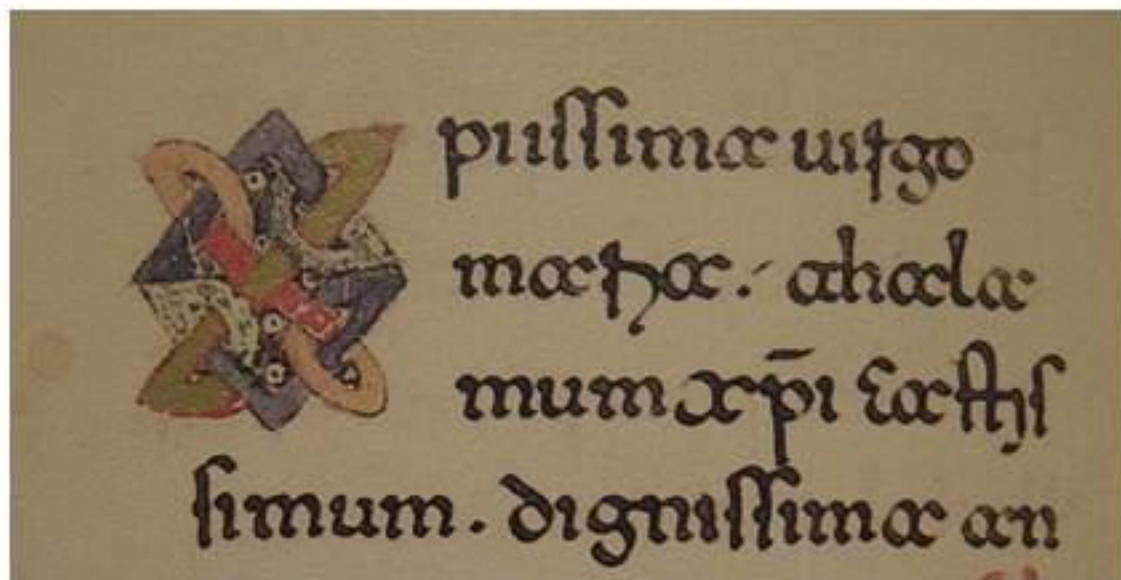 piissima uirgo
maria : thala
mum xp̄i castis
simum . dignissima an